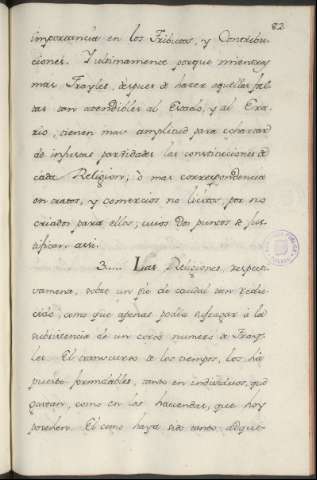 82
importancia en los Tributos, y Contribu-
ciones. Y ultimamente porque mientras
mas Frayles, despues de hacer aquellas fal-
tas tan atendibles al Estado, y al Era-
rio, tienen mas amplitud para
de infinitas parcialidades las constituciones de
cada Religion; ò mas correspondencia
en tratos, y comercios no licitos, por no
criados para ellos; cuios dos puntos se jus-
tifican assi.
3.... Las Religiones, respecti-
vamente, sobre un pie de caudal tan redu-
cido, como que apenas podia sufragar à la
subsistencia de un corto numero de Fray-
les. El transcurso de los tiempos, los hà
puesto formidables, tanto en individuos, que
gastan, como en las haciendas, que hoy
posehen. El como haya sido tanto adqui-